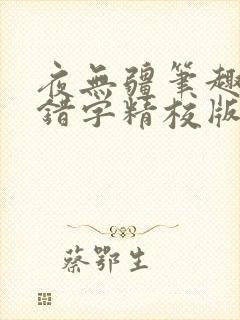 夜無疆筆趣
錯字精校版
蔡鄂生